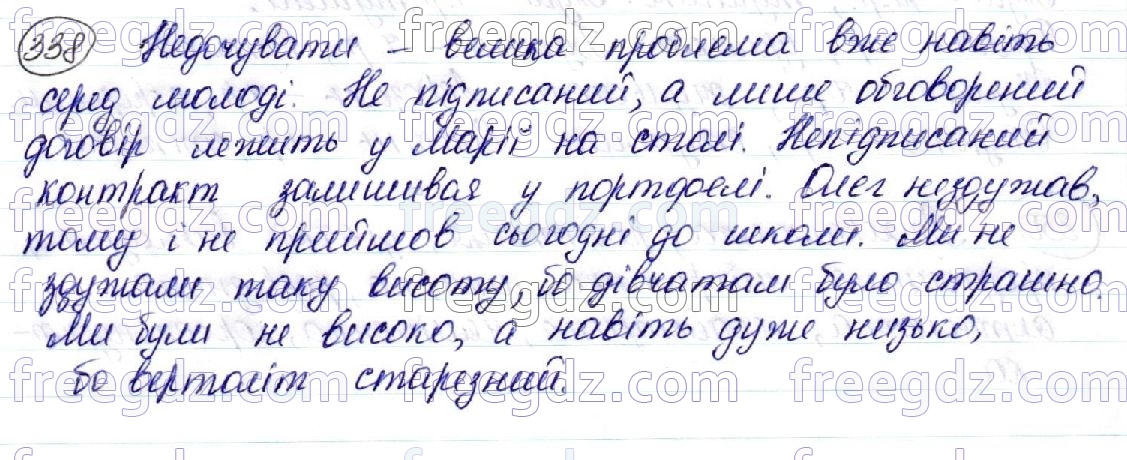 338 Недочувати – велика проблема вже навіть
серед молоді. Не підписаний, а лише обговорений
договір лежить у Марії на столі. Непідписаний
контракт залишився у портфелі. Олег нездужав,
тому і не прийшов сьогодні до школи. Ми не
здужали таку висоту, бо дівчатам було страшно.
Ми були не високо, а навіть дуже низько,
бо вертоліт старезний.
freegdz.com